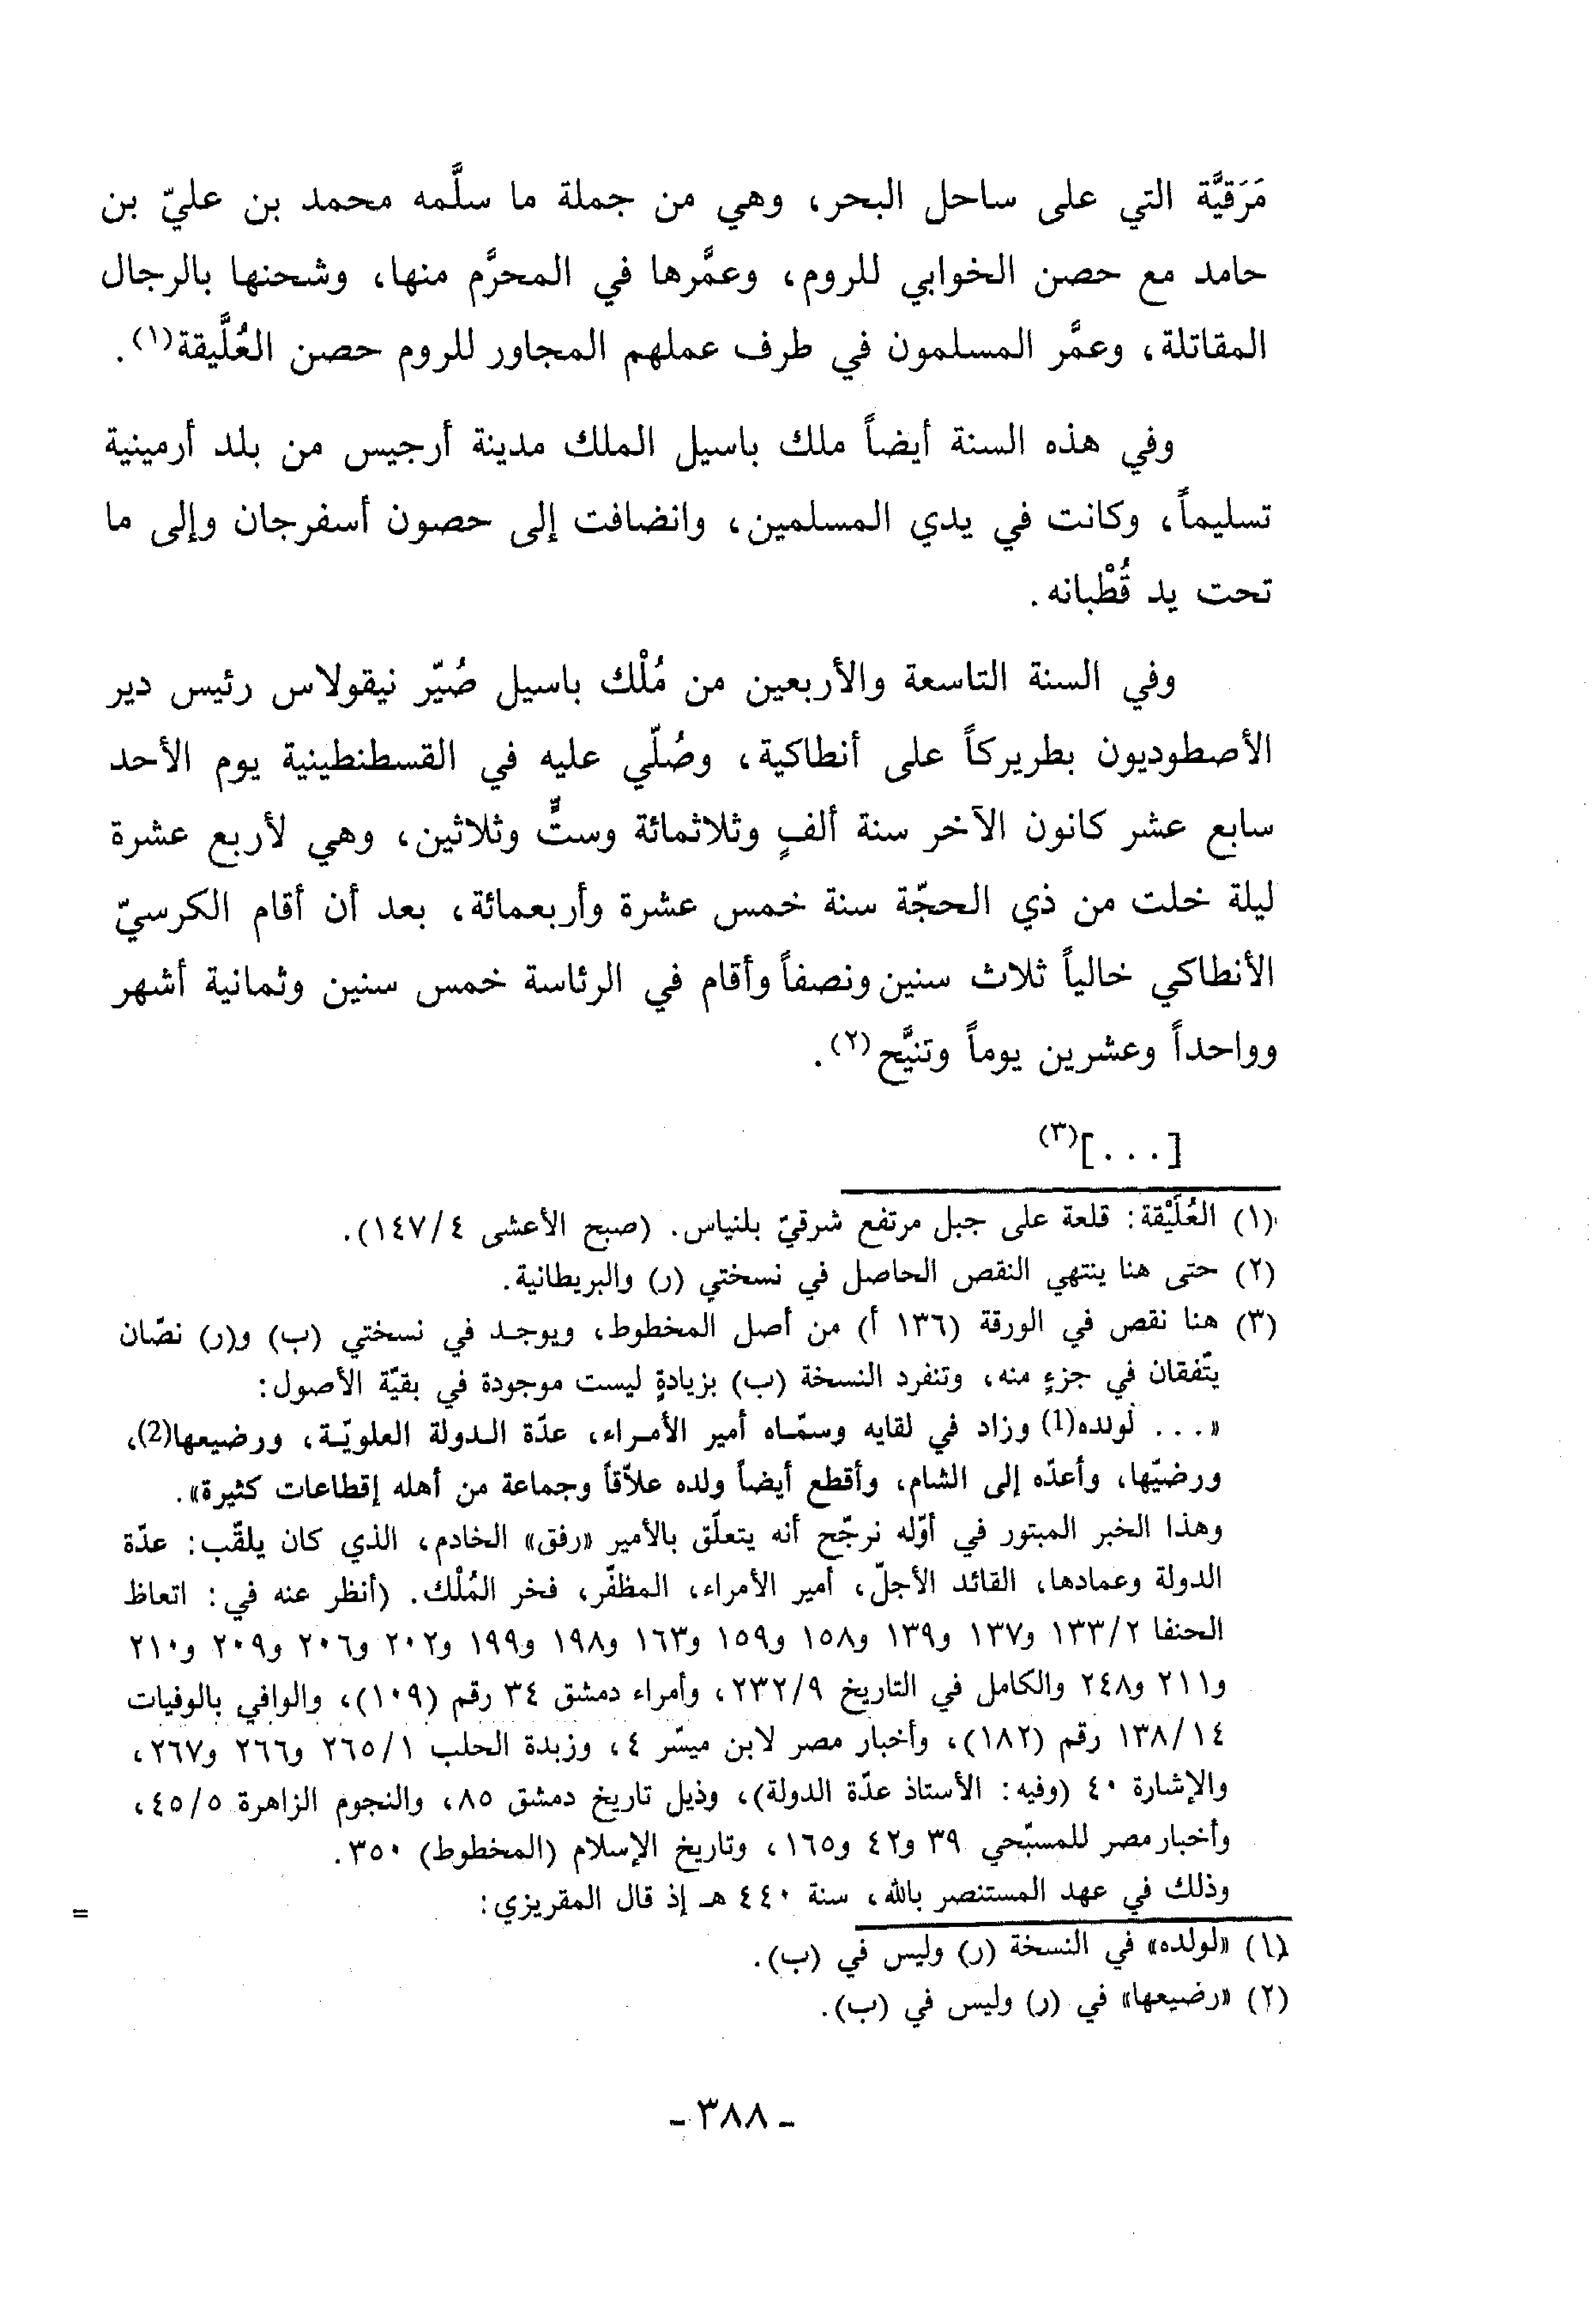 مَرَقيَّة التي على ساحل البحر، وهي من جملة ما سلَّمه محمد بن عليّ بن
حامد مع حصن الخوابي للروم، وعمَّرها في المحرَّم منها، وشحنها بالرجال
المقاتلة، وعمَّر المسلمون في طرف عملهم المجاور للروم حصن العُلَّيقة(١).
وفي هذه السنة أيضاً ملك باسيل الملك مدينة أرجيس من بلد أرمينية
تسليماً، وكانت في يدي المسلمين، وانضافت إلى حصون أسفرجان وإلى ما
تحت يد قُطْبانه.
وفي السنة التاسعة والأربعين من مُلْك باسيل صُيّر نيقولاس رئيس دير
الأصطوديون بطريركاً على أنطاكية، وصُلّي عليه في القسطنطينية يوم الأحد
سابع عشر كانون الآخر سنة ألفٍ وثلاثمائة وستٍّ وثلاثين، وهي لأربع عشرة
ليلة خلت من ذي الحجّة سنة خمس عشرة وأربعمائة، بعد أن أقام الكرسيّ
الأنطاكي خالياً ثلاث سنين ونصفاً وأقام في الرئاسة خمس سنين وثمانية أشهر
وواحداً وعشرين يوماً وتنيَّح(٢).
[...](٣)
(١) العُلَيْقة: قلعة على جبل مرتفع شرقيّ بلنياس. (صبح الأعشى ١٤٧/٤).
(٢) حتى هنا ينتهي النقص الحاصل في نسختي (ر) والبريطانية.
(٣) هنا نقص في الورقة (١٣٦ أ) من أصل المخطوط، ويوجد في نسختي (ب) و(ر) نصّان
يتّفقان في جزءٍ منه، وتنفرد النسخة (ب) بزيادةٍ ليست موجودة في بقيّة الأصول:
«... لولده(1) وزاد في لقايه وسمّاه أمير الأمراء، عدّة الدولة العلويّة، ورضيعها(2)،
ورضيّها، وأعدّه إلى الشام، وأقطع أيضاً ولده علاّقاً وجماعة من أهله إقطاعات كثيرة».
وهذا الخبر المبتور في أوّله نرجّح أنه يتعلّق بالأمير «رفق» الخادم، الذي كان يلقّب: عدّة
الدولة وعمادها، القائد الأجلّ، أمير الأمراء، المظفّر، فخر المُلْك. (أنظر عنه في: اتعاظ
الحنفا ١٣٣/٢ و١٣٧ و١٣٩ و١٥٨ و١٥٩ و١٦٣ و١٩٨ و١٩٩ و٢٠٢ و٢٠٦ و٢٠٩ و٢١٠
و٢١١ و٢٤٨ والكامل في التاريخ ٢٣٢/٩، وأمراء دمشق ٣٤ رقم (١٠٩)، والوافي بالوفيات
١٣٨/١٤ رقم (١٨٢)، وأخبار مصر لابن ميسّر ٤، وزبدة الحلب ٢٦٥/١ و٢٦٦ و٢٦٧،
والإشارة ٤٠ (وفيه: الأستاذ عدّة الدولة)، وذيل تاريخ دمشق ٨٥، والنجوم الزاهرة ٤٥/٥،
وأخبار مصر للمسبّحي ٣٩ و٤٢ و١٦٥، وتاريخ الإسلام (المخطوط) ٣٥٠.
وذلك في عهد المستنصر بالله، سنة ٤٤٠ هـ إذ قال المقريزي:
=
(١) «لولده» في النسخة (ر) وليس في (ب).
(٢) «رضيعها» في (ر) وليس في (ب).
- ٣٨٨ -